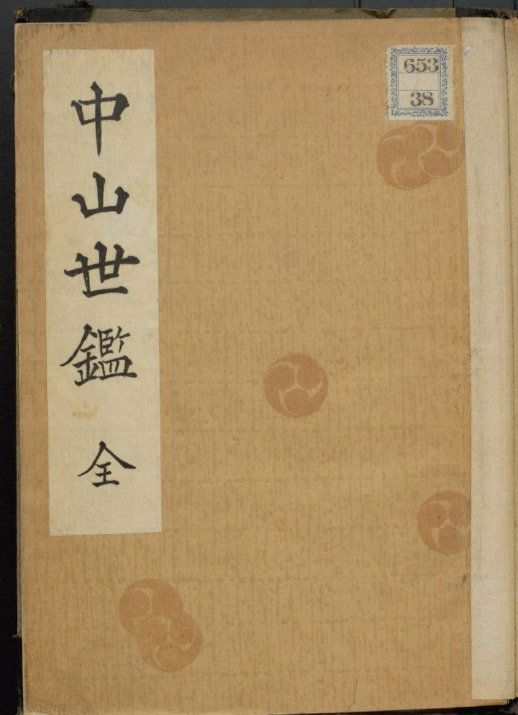 中山世鑑 全
653
38